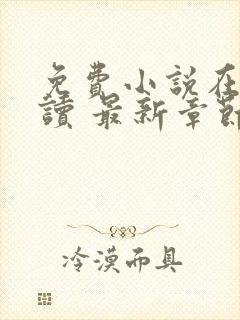 免費小說在
讀 最新章節
冷漠面具